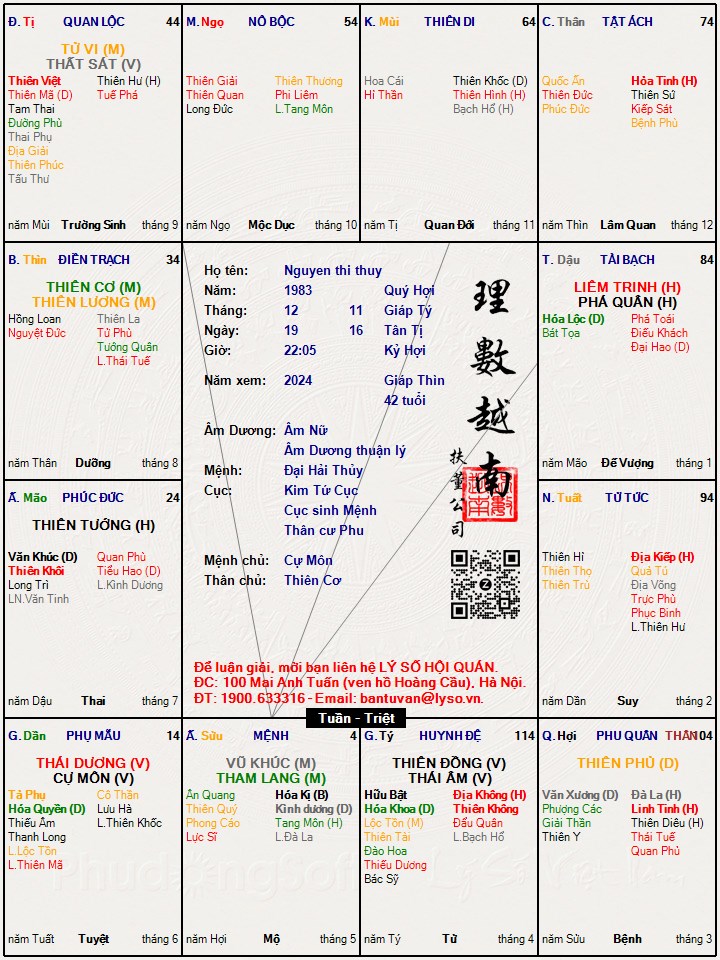 Đ. Tị QUAN LỘC 44
TỬ VI (M)
THẤT SÁT (V)
Thiên Việt Thiên Hư (H)
Thiên Mã (D) Tuế Phá
Tam Thai
Đường Phù
Thai Phụ
Địa Giải
Thiên Phúc
Tấu Thư
năm Mùi Trường Sinh tháng 9
M. Ngọ NÔ BỘC 54
Thiên Giải Thiên Thương
Thiên Quan Phi Liêm
Long Đức L.Tang Môn
năm Ngọ Mộc Dục tháng 10
K. Mùi THIÊN DI 64
Hoa Cái Thiên Khốc (D)
Hỉ Thần Thiên Hình (H)
Bạch Hổ (H)
năm Tị Quan Đới tháng 11
C. Thân TẬT ÁCH 74
Quốc Ấn Hỏa Tinh (H)
Thiên Đức Thiên Sứ
Phúc Đức Kiếp Sát
Bệnh Phù
năm Thìn Lâm Quan tháng 12
B. Thìn ĐIỀN TRẠCH 34
THIÊN CƠ (M)
THIÊN LƯƠNG (M)
Hồng Loan Thiên La
Nguyệt Đức Tử Phù
Tướng Quân
L.Thái Tuế
năm Thân Dưỡng tháng 8
Họ tên: Nguyen thi thuy
Năm: 1983 Quý Hợi
Tháng: 12 11 Giáp Tý
Ngày: 19 16 Tân Tị
Giờ: 22:05 Kỷ Hợi
Năm xem: 2024 Giáp Thìn
42 tuổi
Âm Dương: Âm Nữ
Âm Dương thuận lý
Mệnh: Đại Hải Thủy
Cục: Kim Tứ Cục
Cục sinh Mệnh
Thân cư Phu
Mệnh chủ: Cự Môn
Thân chủ: Thiên Cơ
理數越南
扶董公司
Để luận giải, mời bạn liên hệ LÝ SỐ HỘI QUÁN.
ĐC: 100 Mai Anh Tuấn (ven hồ Hoàng Cầu), Hà Nội.
ĐT: 1900.633316 - Email: bantuvan@lyso.vn.
Tuần - Triệt
T. Dậu TÀI BẠCH 84
LIÊM TRINH (H)
PHÁ QUÂN (H)
Hóa Lộc (D) Phá Toái
Bát Tọa Điếu Khách
Đại Hao (D)
năm Mão Đế Vượng tháng 1
Ấ. Mão PHÚC ĐỨC 24
THIÊN TƯỚNG (H)
Văn Khúc (D) Quan Phù
Thiên Khôi Tiểu Hao (D)
Long Trì L.Kình Dương
LN.Văn Tinh
năm Dậu Thai tháng 7
N. Tuất TỬ TỨC 94
Thiên Hỉ Địa Kiếp (H)
Thiên Thọ Quả Tú
Thiên Trù Địa Võng
Trực Phù
Phục Binh
L.Thiên Hư
năm Dần Suy tháng 2
G. Dần PHỤ MẪU 14
THÁI DƯƠNG (V)
CỰ MÔN (V)
Tả Phụ Cô Thần
Hóa Quyền (D) Lưu Hà
Thiếu Âm L.Thiên Khốc
Thanh Long
L.Lộc Tồn
L.Thiên Mã
năm Tuất Tuyệt tháng 6
Ấ. Sửu MỆNH 4
VŨ KHÚC (M)
THAM LANG (M)
Ân Quang Hóa Kị (B)
Thiên Quý Kình dương (D)
Phong Cáo Tang Môn (H)
Lực Sĩ L.Đà La
năm Hợi Mộ tháng 5
G. Tý HUYNH ĐỆ 114
THIÊN ĐỒNG (V)
THÁI ÂM (V)
Hữu Bật Địa Không (H)
Hóa Khoa (D) Thiên Không
Lộc Tồn (M) Đẩu Quân
Thiên Tài L.Bạch Hổ
Đào Hoa
Thiếu Dương
Bác Sỹ
năm Tý Tử tháng 4
Q. Hợi PHU QUÂN THÂN 104
THIÊN PHỦ (D)
Văn Xương (D) Đà La (H)
Phượng Các Linh Tinh (H)
Giải Thần Thiên Diêu (H)
Thiên Y Thái Tuế
Quan Phủ
năm Sửu Bệnh tháng 3